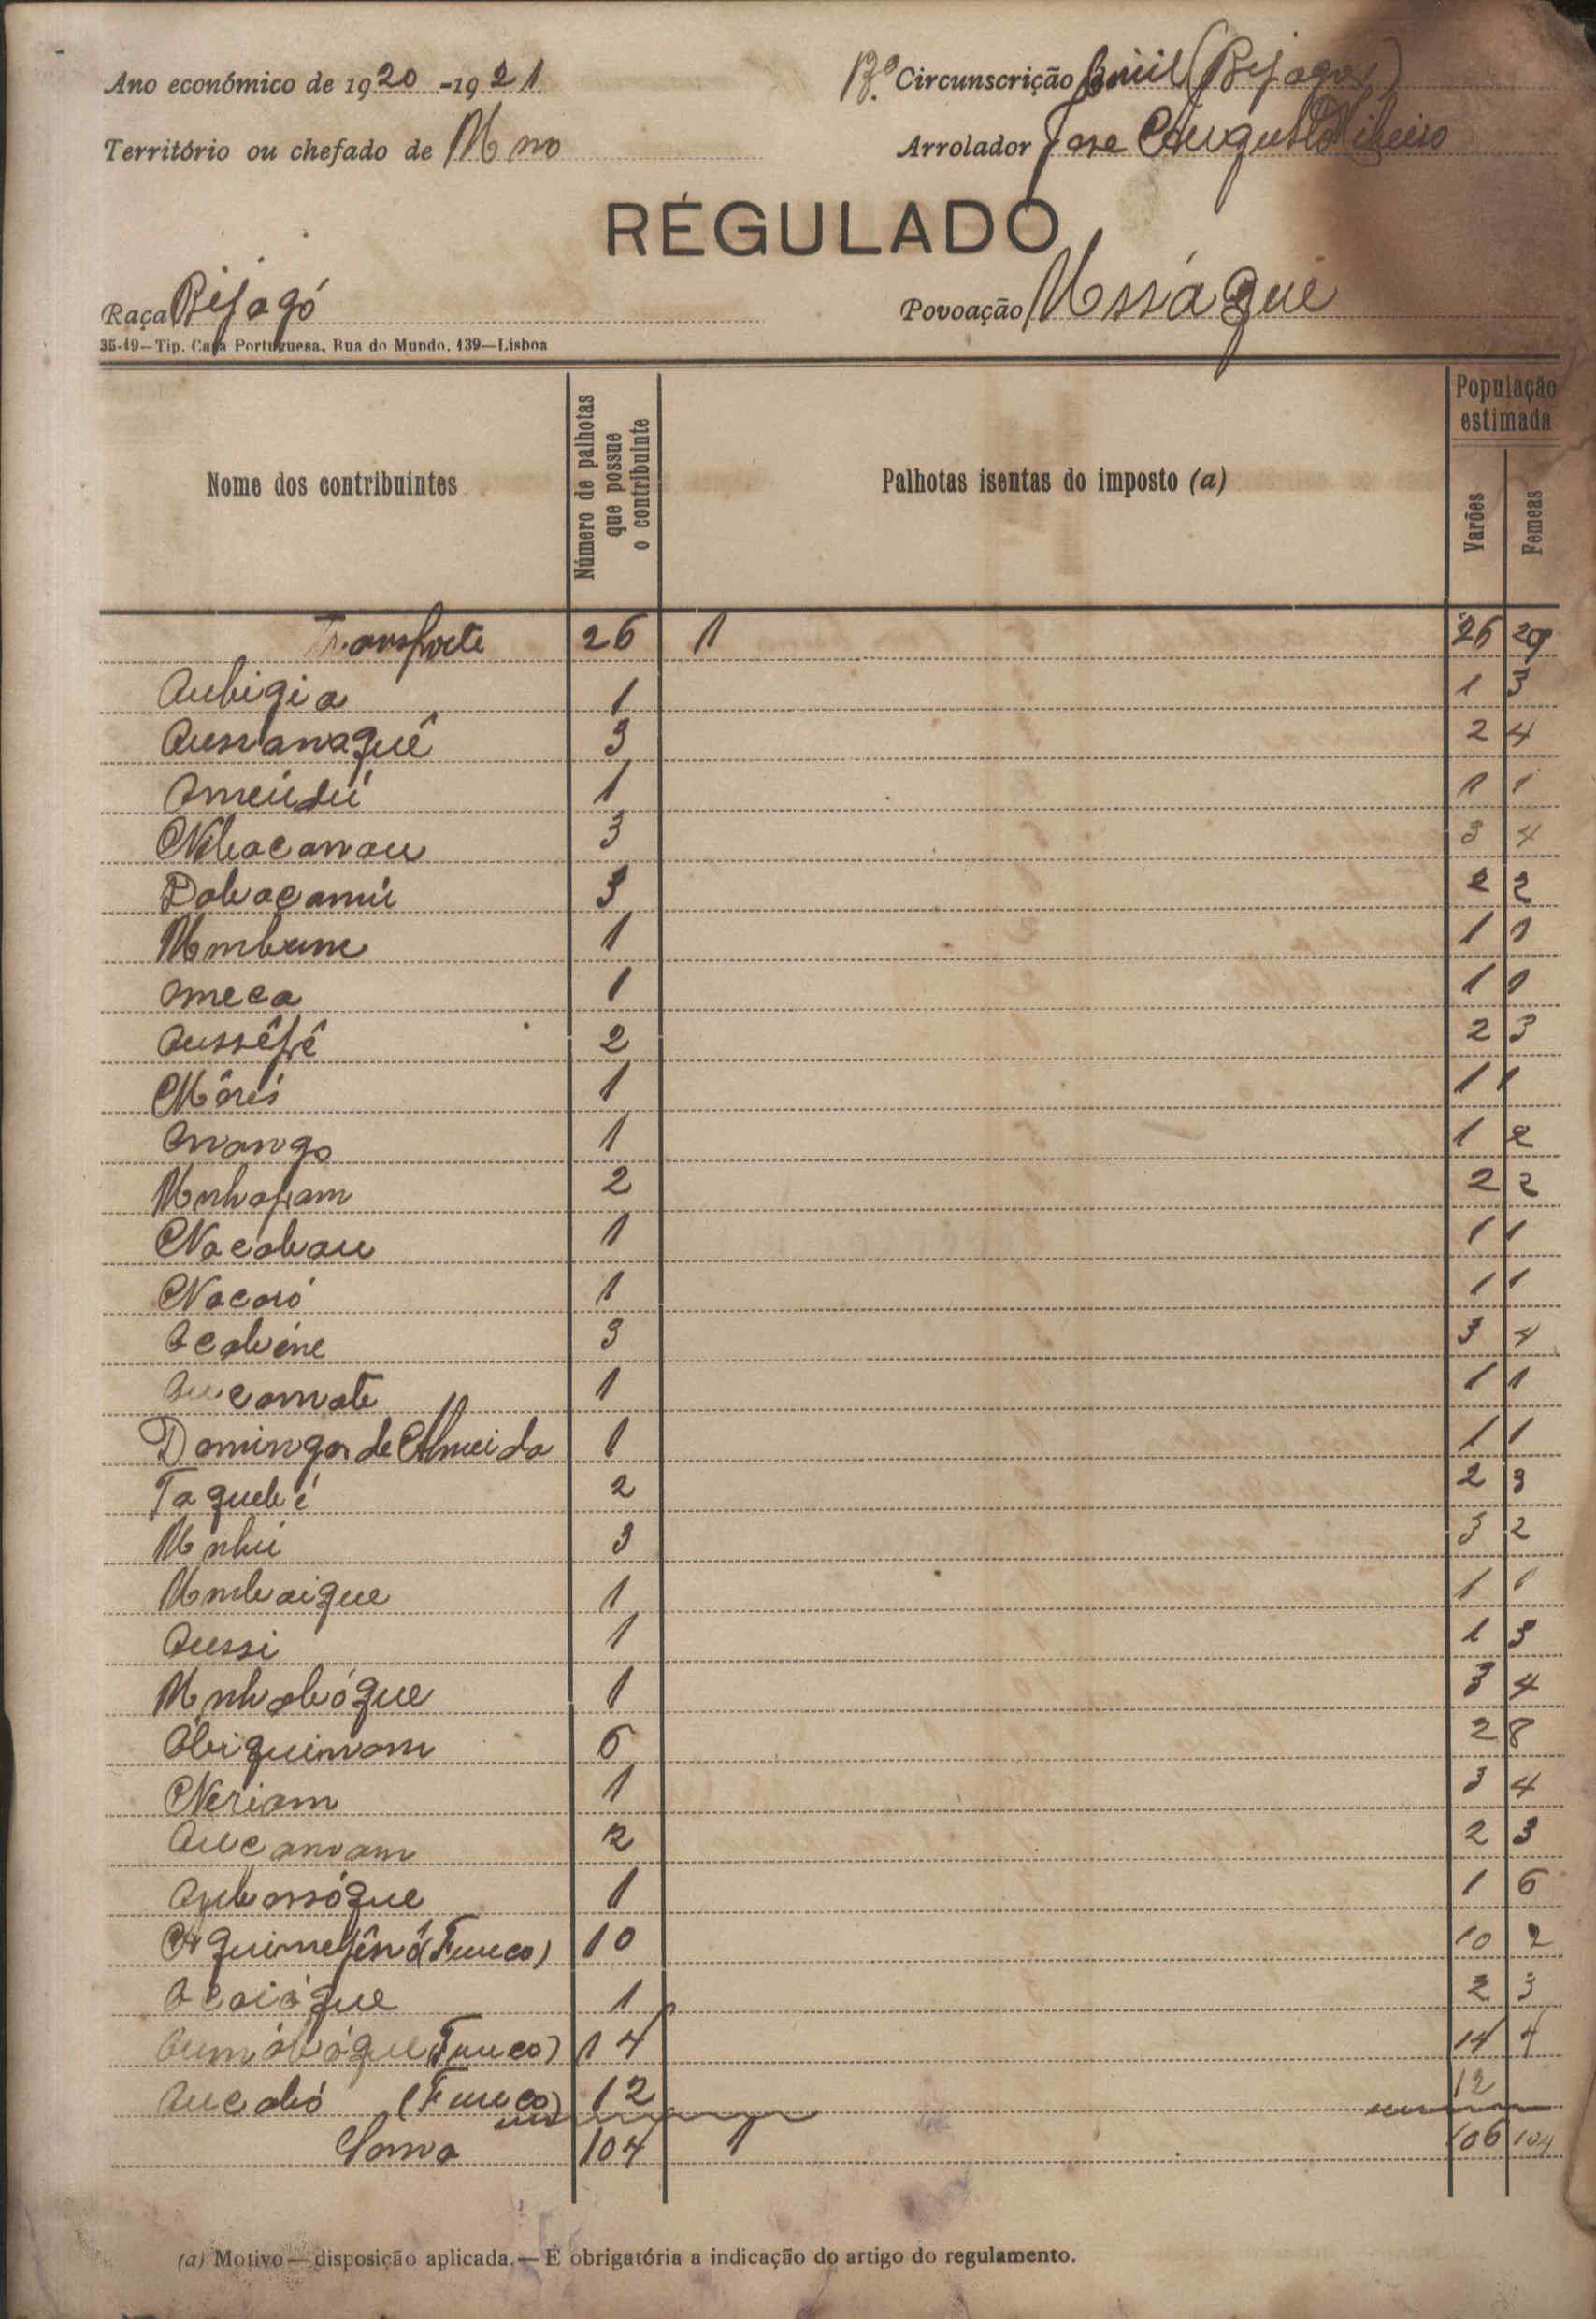 Ano económico de 1920-1921
Bº Circunscrição Civil (Bijagos)
Território ou chefado de Uno
Arrolador Jose Augusto Ribeiro
RÉGULADO
Raça Bijagó
Povoação Ussáque
35-19—Tip. Casa Portuguesa, Rua do Mundo, 139—Lisboa
Nome dos contribuintes
Número de palhotas que possue o contribuinte
Palhotas isentas do imposto (a)
População estimada
Varões
Femeas
Transporte 26 1 26 29
Aubigia 1 1 3
Aussanaquê 3 2 4
Ameúdú 1 1 1
Nbacanau 3 3 4
Dabacamú 3 2 2
Umbune 1 1 1
Ameca 1 1 1
Aussêpê 2 2 3
Môrés 1 1 1
Anango 1 1 2
Unhapam 2 2 2
Nacabau 1 1 1
Nacaró 1 1 1
Acabéne 3 3 4
Aucamate 1 1 1
Domingos de Almeida 1 1 1
Taquebé 2 2 3
Unhú 3 3 2
Umbaique 1 1 1
Aussi 1 1 3
Unhabóque 1 3 4
Obiquinam 6 2 8
Neriam 1 3 4
Aucanam 2 2 3
1 1 6
(Fuuco) 10 10 2
Acaióque 1 2 3
Aumóbóque (Fuuco) 14 14 4
Aucabó (Fuuco) 12 12
Soma 104 1 106 104
(a) Motivo — disposição aplicada. — É obrigatória a indicação do artigo do regulamento.